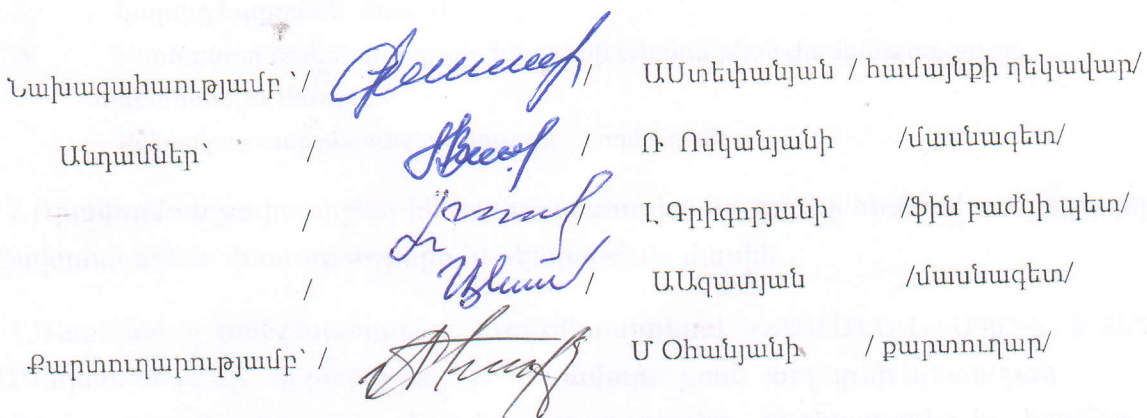 Նախագահությամբ՝ / / ԱՍտեփանյան / համայնքի ղեկավար/
Անդամներ՝ / / Ռ Ոսկանյանի /մասնագետ/
/ Լ Գրիգորյանի /ֆին բաժնի պետ/
/ / ԱԱզատյան /մասնագետ/
Քարտուղարությամբ՝ / Մ Օհանյանի / քարտուղար/